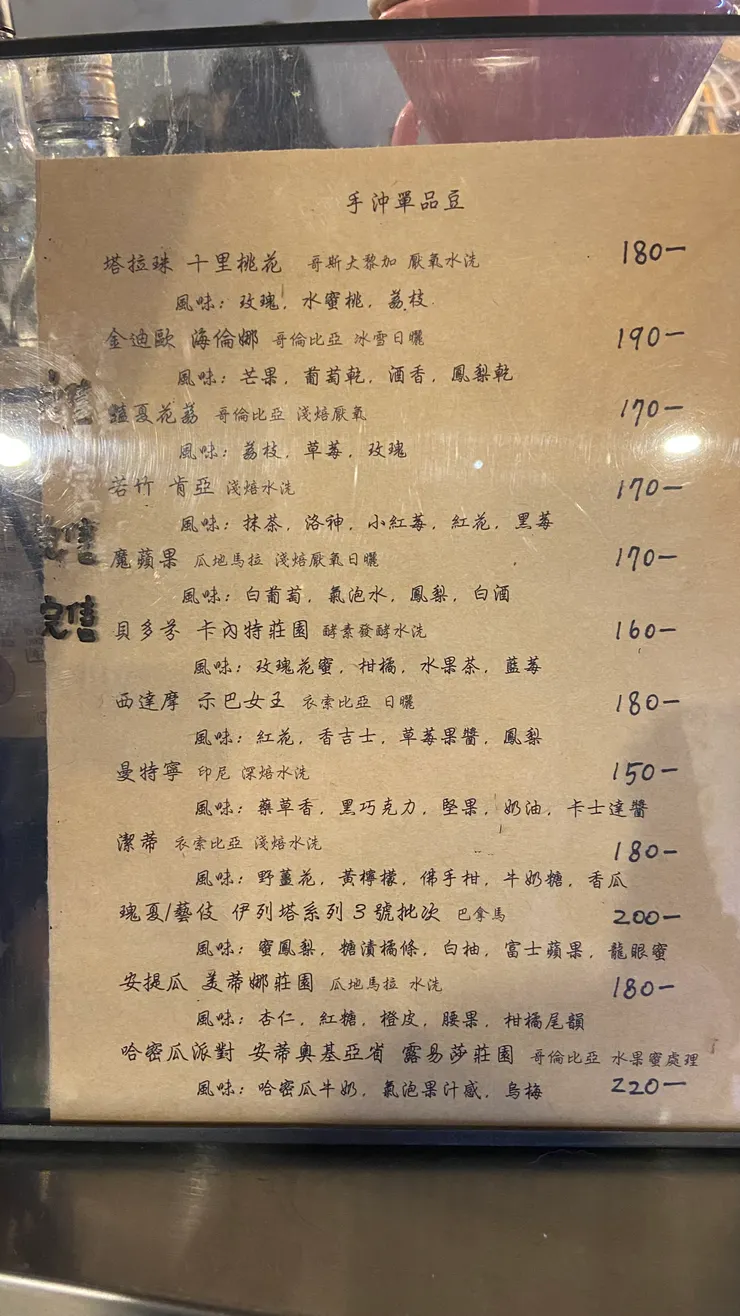 手沖單品豆
塔拉珠 千里桃花 哥斯大黎加 厭氧水洗 180-
風味: 玫瑰, 水蜜桃, 荔枝
金迪歐 海倫娜 哥倫比亞 冰雪日曬 190-
風味: 芒果, 葡萄乾, 酒香, 鳳梨乾
售 夏花荔 哥倫比亞 淺焙厭氧 170-
風味: 荔枝, 草莓, 玫瑰
若竹 肯亞 淺焙水洗 170-
風味: 抹茶, 洛神, 小紅莓, 紅花, 黑莓
完售 魔蘋果 瓜地馬拉 淺焙厭氧日曬 170-
風味: 白葡萄, 氣泡水, 鳳梨, 白酒
完售 貝多芬 卡內特莊園 酵素發酵水洗 160-
風味: 玫瑰花蜜, 柑橘, 水果茶, 藍莓
西達摩 示巴女王 衣索比亞 日曬 180-
風味: 紅花, 香吉士, 草莓果醬, 鳳梨
曼特寧 印尼 深焙水洗 150-
風味: 藥草香, 黑巧克力, 堅果, 奶油, 卡士達醬
潔蒂 衣索比亞 淺焙水洗 180-
風味: 野薑花, 黃檸檬, 佛手柑, 牛奶糖, 香瓜
瑰夏/藝伎 伊列塔系列3號批次 巴拿馬 200-
風味: 蜜鳳梨, 糖漬橘條, 白柚, 富士蘋果, 龍眼蜜
安提瓜 美蒂娜莊園 瓜地馬拉 水洗 180-
風味: 杏仁, 紅糖, 橙皮, 腰果, 柑橘尾韻
哈密瓜派對 安蒂奧基亞省 露易莎莊園 哥倫比亞 水果蜜處理
風味: 哈密瓜牛奶, 氣泡果汁感, 烏梅 220-